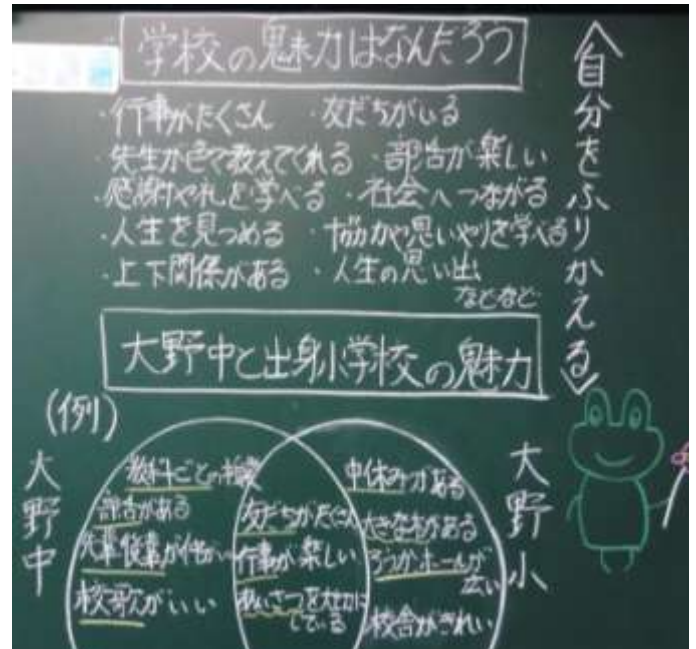 学校の魅力はなんだろう
〈自分をふりかえる〉
・行事がたくさん ・友だちがいる
・先生が 教えてくれる ・部活が楽しい
・感謝や礼を学べる ・社会へつながる
・人生を見つめる ・協力や思いやりを学べる
・上下関係がある ・人生の思い出
などなど
大野中と出身小学校の魅力
(例)
大野中
教科ごとの授業
部活がある
先輩後輩が仲が
校歌がいい
友だちがたくさん
行事が楽しい
あいさつを大切に
している
大野小
中休みがある
大きな木がある
ろうかホールが
広い
校舎がきれい